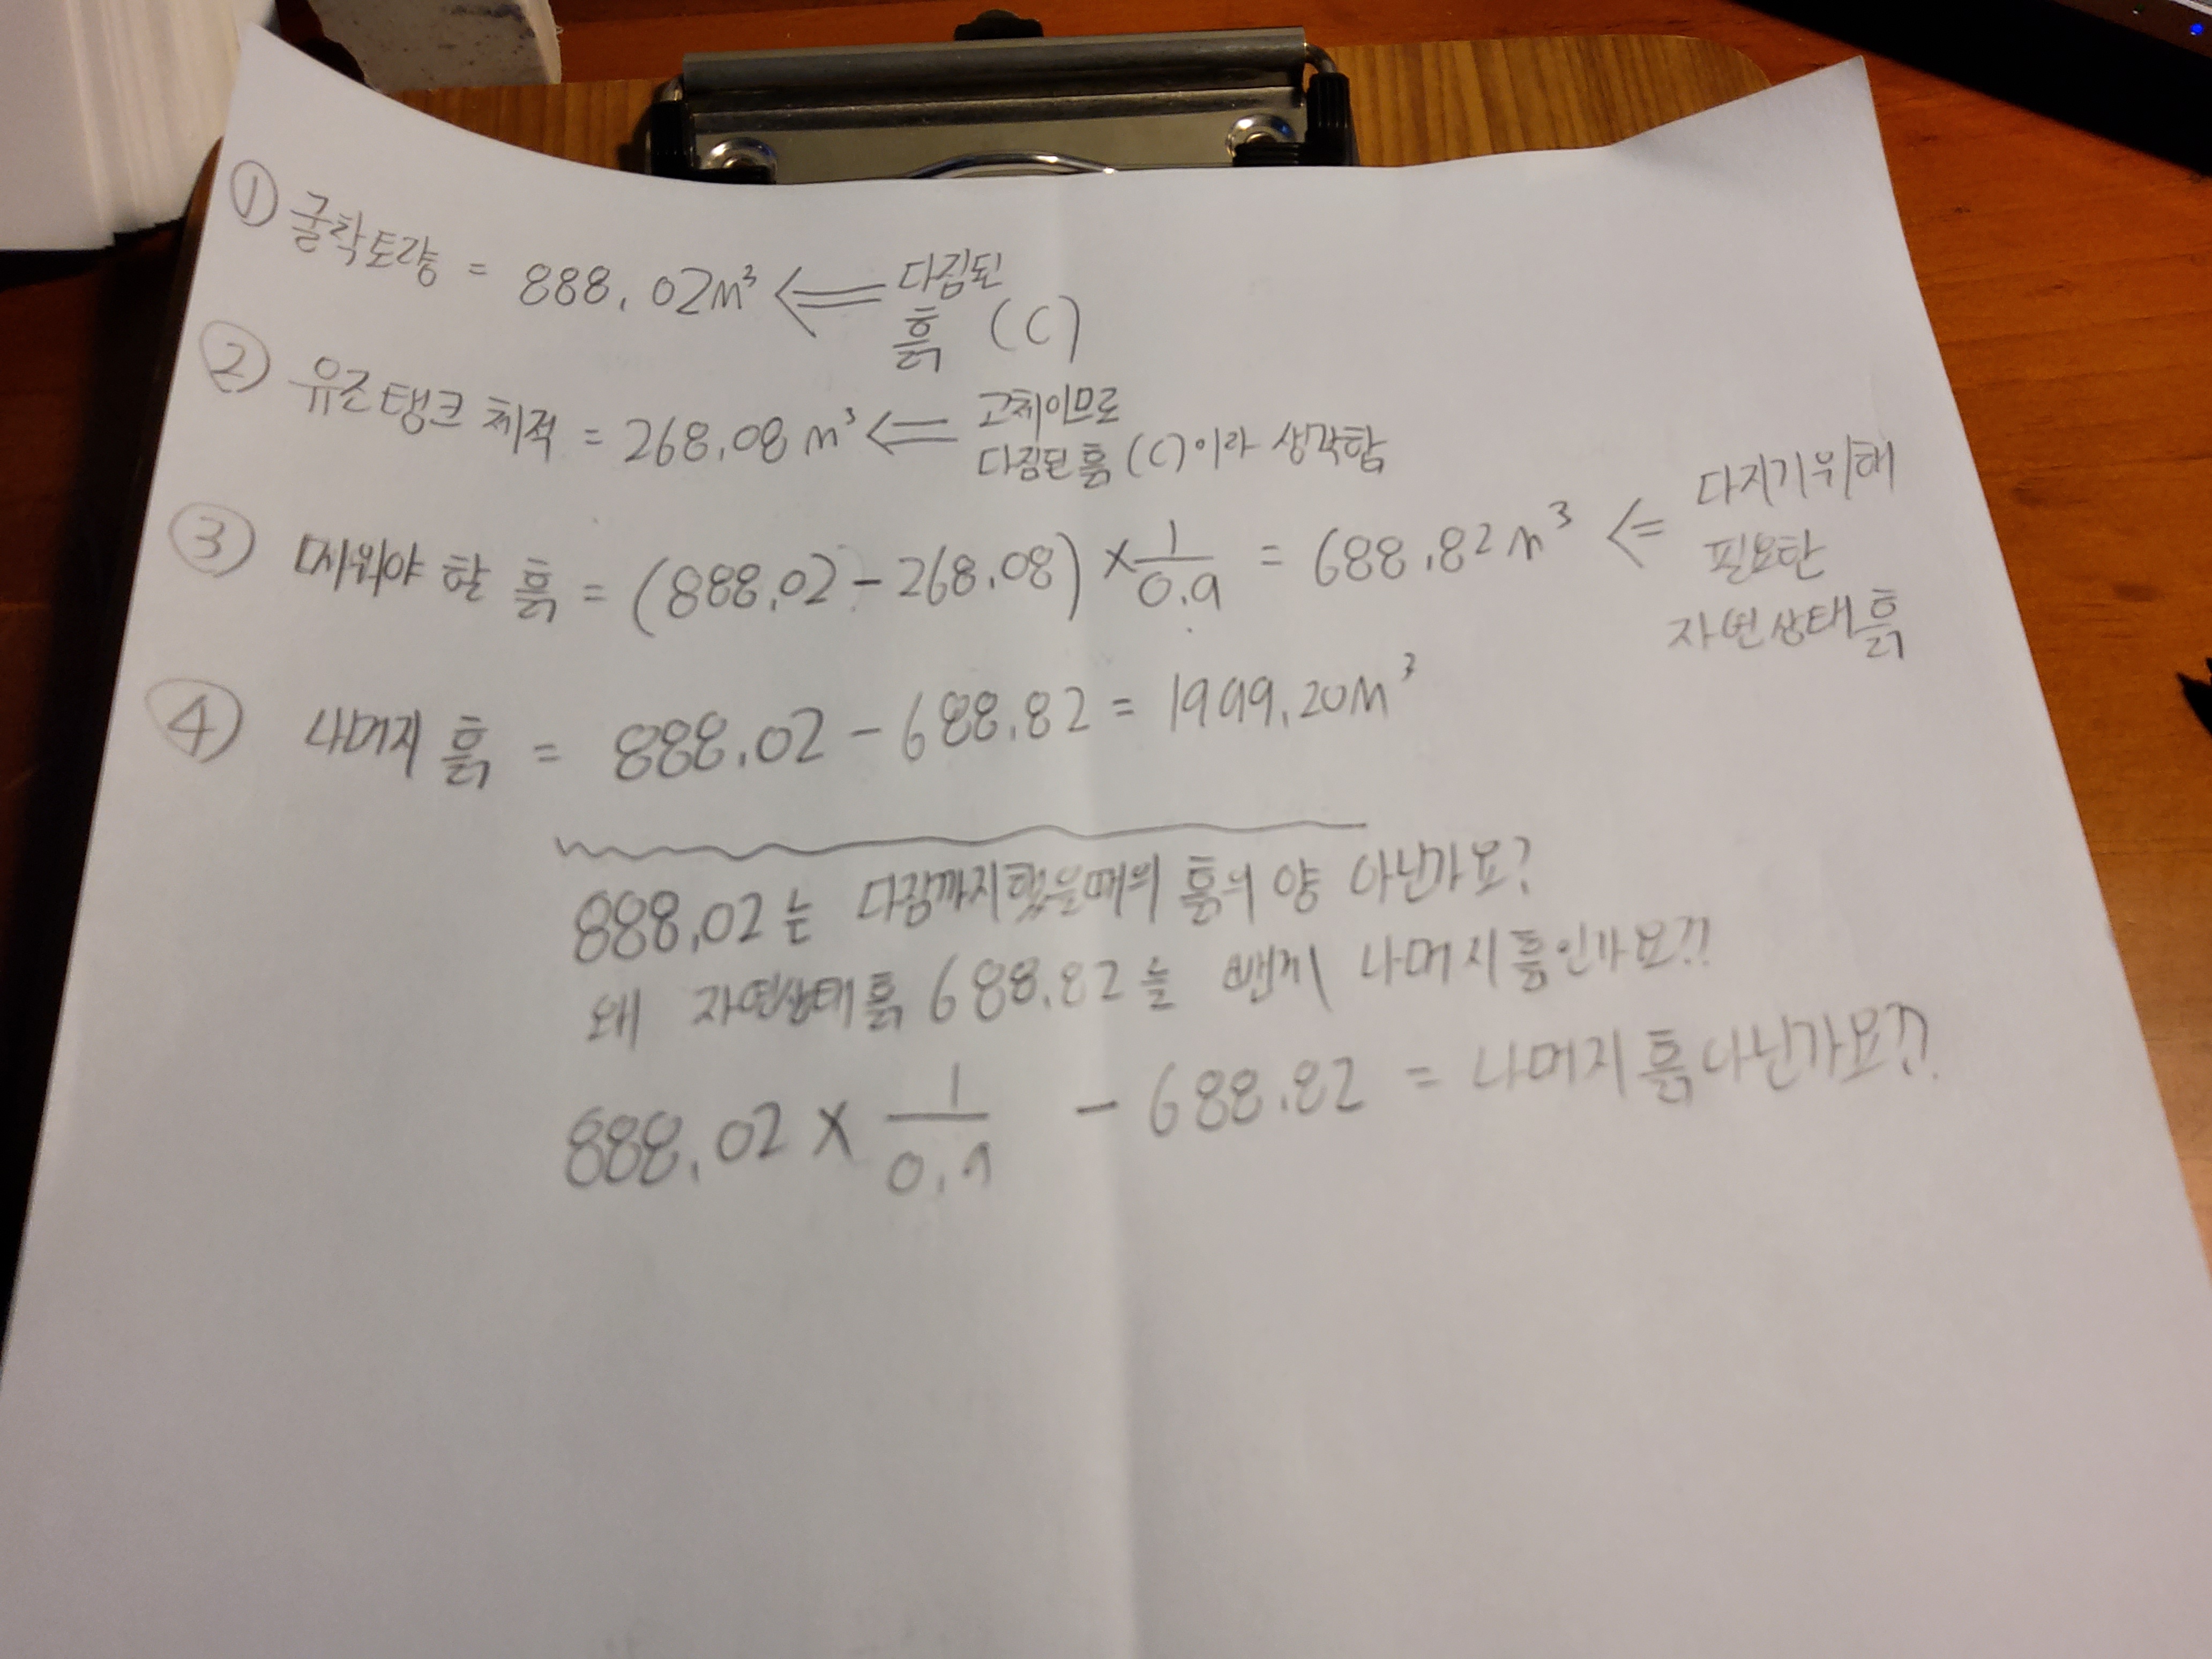 ① 굴착토량 = 888.02m³ ⇐ 다짐된 흙 (C)
② 유조탱크 체적 = 268.08m³ ⇐ 고체이므로 다짐된 흙 (C)이라 생각함
③ 메워야 할 흙 = (888.02 - 268.08) × 1/0.9 = 688.82m³ ⇐ 다지기위해 필요한 자연상태흙
④ 나머지 흙 = 888.02 - 688.82 = 1999.20m³
888.02는 다짐까지했을때의 흙의 양 아닌가요?
왜 자연상태흙 688.82를 뺀게 나머지흙인가요??
888.02 × 1/0.9 - 688.82 = 나머지흙아닌가요??